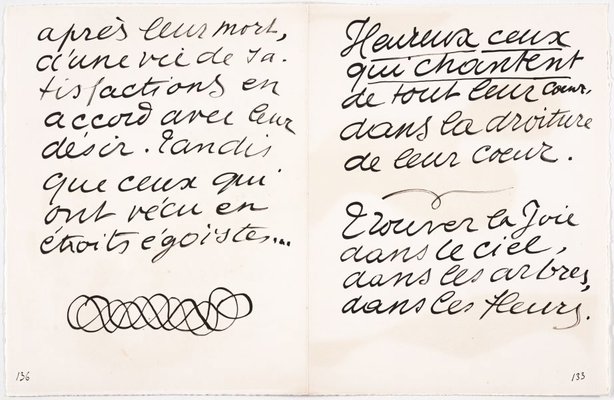 après leur mort,
d'une vie de sa-
tisfactions en
accord avec leur
désir. Tandis
que ceux qui
ont vécu en
étroits égoïstes...
136
Heureux ceux
qui chantent
de tout leur cœur,
dans la droiture
de leur cœur.
Trouver la Joie
dans le ciel,
dans les arbres,
dans les fleurs.
133